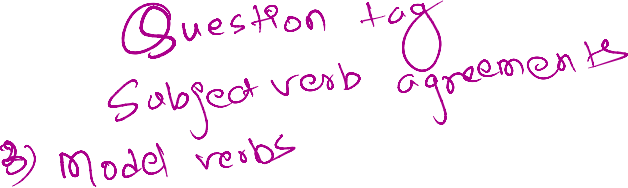 Question tag
Subject verb agreements
3) Model verbs